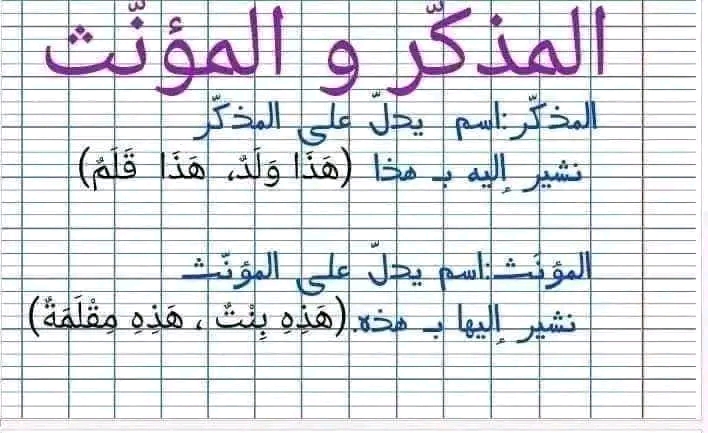 المذكّر و المؤنّث
المذكّر:اسم يدلّ على المذكّر
نشير إليه بـ هذا (هَذَا وَلَدٌ، هَذَا قَلَمٌ)
المؤنَث:اسم يدلّ على المؤنّث
نشير إليها بـ هذه.(هَذِهِ بِنْتٌ ، هَذِهِ مِقْلَمَةٌ)